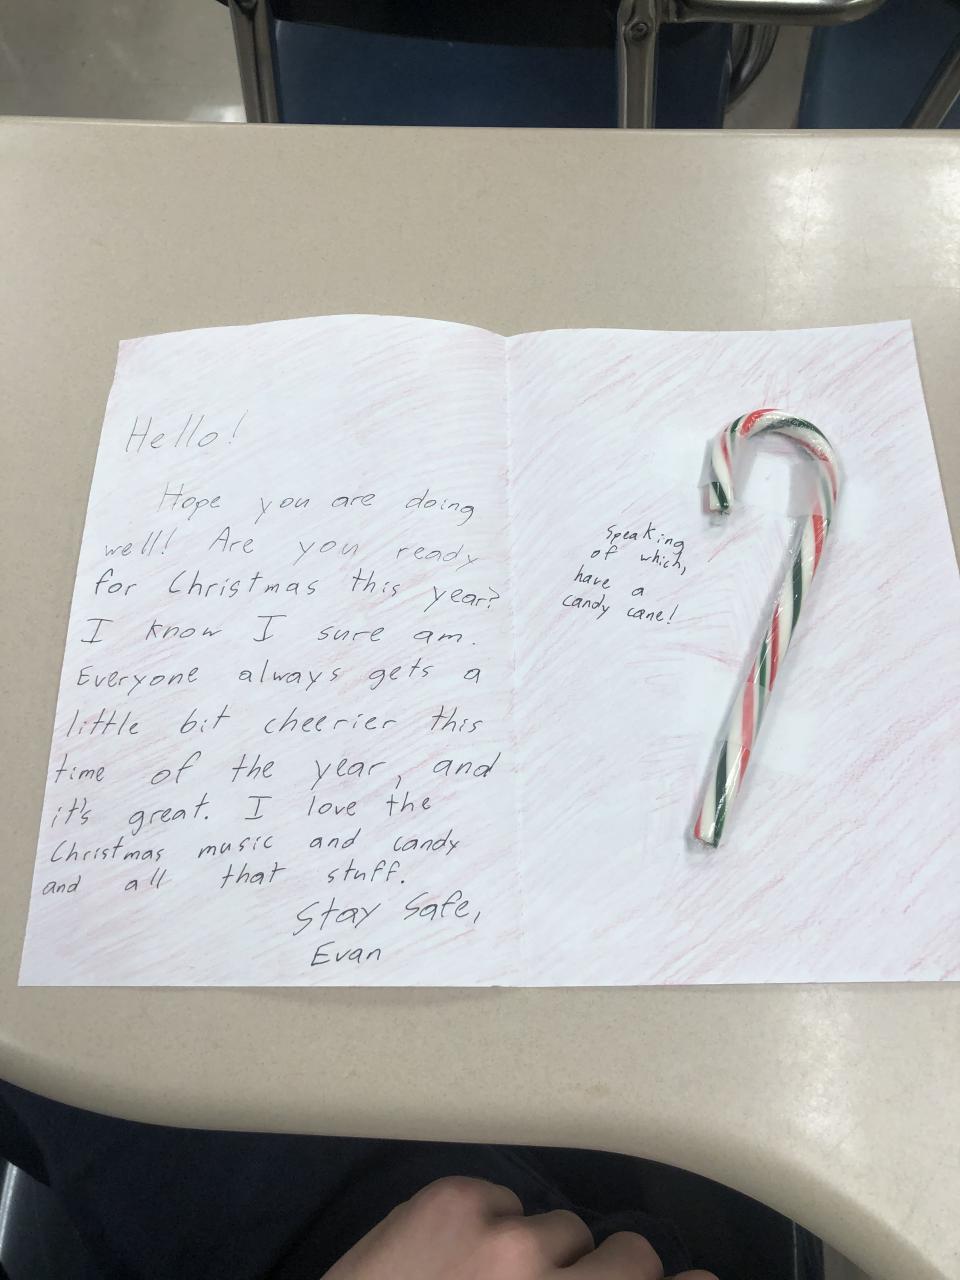 Hello!
Hope you are doing
well! Are you ready
for Christmas this year?
I know I sure am.
Everyone always gets a
little bit cheerier this
time of the year, and
it's great. I love the
Christmas music and candy
and all that stuff.
Stay Safe,
Evan
Speaking
of which,
have a
candy cane!